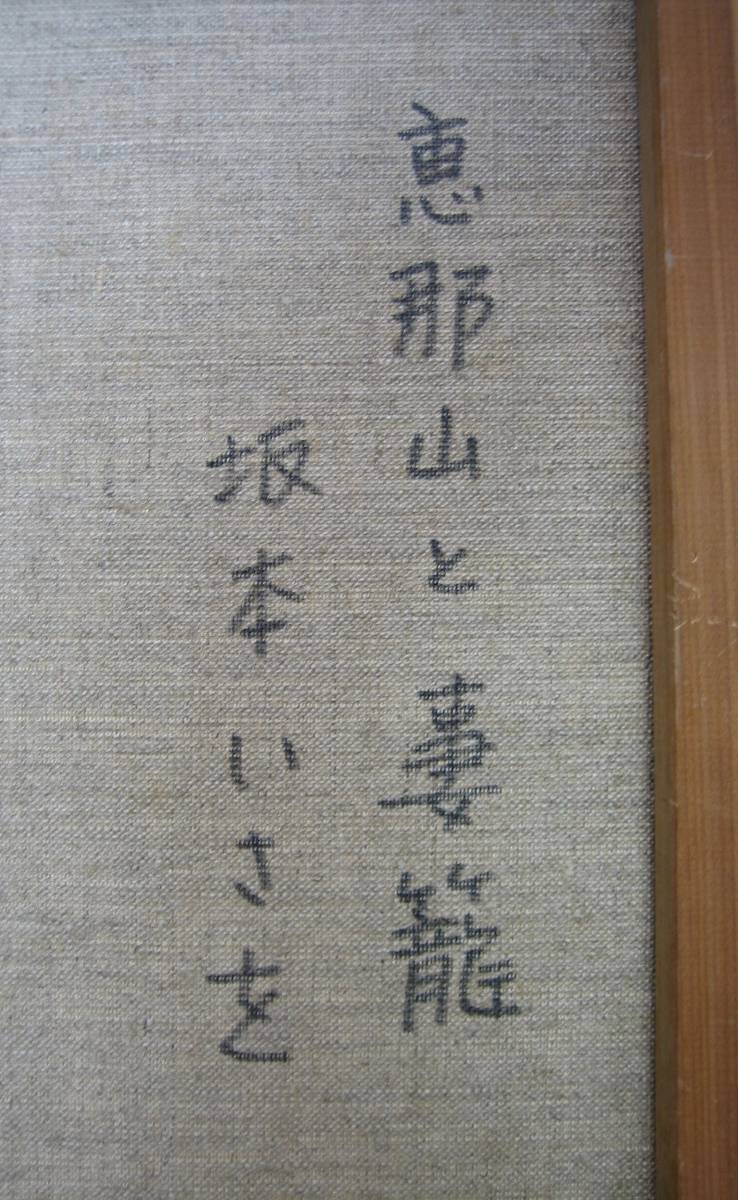 恵那山と妻籠
坂本いさを